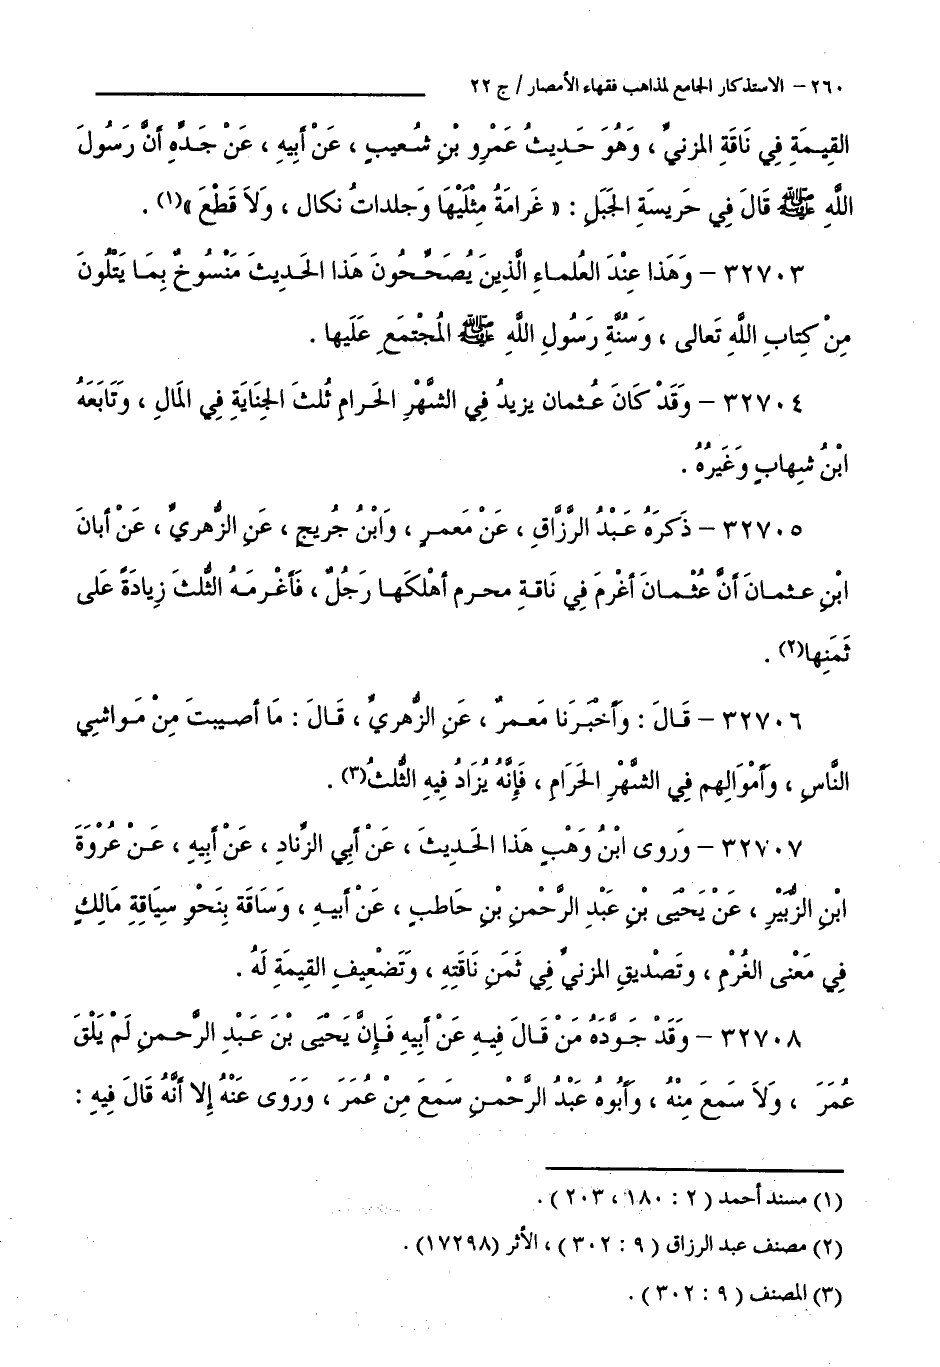 ٢٦٠ – الاستذكار الجامع لمذاهب فقهاء الأمصار / ج ٢٢
القِيمَةِ فِي نَاقَةِ المزنيِّ ، وَهُوَ حَدِيثُ عَمْرِو بْنِ شُعيبٍ ، عَنْ أَبِيهِ ، عَنْ جَدِّهِ أنَّ رَسُولَ
اللَّهِ ﷺ قَالَ فِي حَرِيسةِ الجَبَلِ : « غَرامَةُ مِثْلَيْهَا وَجلداتُ نكال ، وَلاَ قَطْعَ »(١) .
٣٢٧٠٣ – وَهَذا عِنْدَ العُلماءِ الَّذِينَ يُصَحِّحُونَ هَذا الحَديثَ مَنْسُوخٌ بِمَا يَتْلُونَ
مِنْ كِتابِ اللَّهِ تَعالى ، وَسُنَّةِ رَسُولِ اللَّهِ ﷺ المُجْتمَعِ عَلَيها .
٣٢٧٠٤ – وَقَدْ كَانَ عُثمان يزيدُ فِي الشَّهْرِ الحَرامِ ثُلثَ الجِنَايَةِ فِي المَالِ ، وَتَابَعَهُ
ابْنُ شِهابٍ وَغَيرُهُ .
٣٢٧٠٥ – ذَكَرَهُ عَبْدُ الرَّزَّاقِ ، عَنْ مَعمرٍ ، وَابْنُ جُريجٍ ، عَنِ الزُّهريِّ ، عَنْ أبانَ
ابْنِ عثمانَ أنَّ عُثْمانَ أغْرمَ فِي نَاقةِ محرم أهْلكَها رَجُلٌ ، فَأغْرمَهُ الثُّلثَ زِيادَةً عَلى
ثَمَنِها(٢) .
٣٢٧٠٦ – قَالَ : وَأخْبَرَنا مَعمرٌ ، عَنِ الزُّهريِّ ، قَالَ : مَا أصيبتَ مِنْ مَواشي
النَّاسِ ، وَأمْوَالِهم فِي الشَّهْرِ الحَرامِ ، فَإنَّهُ يُزَادُ فِيهِ الثُّلثُ(٣) .
٣٢٧٠٧ – وَروى ابْنُ وَهْبٍ هَذا الحَدِيثَ ، عَنْ أَبي الزِّنادِ ، عَنْ أَبِيهِ ، عَنْ عُرْوَةَ
ابْنِ الزُّبَيْرِ ، عَنْ يَحْيَى بْنِ عَبْدِ الرَّحْمنِ بْنِ حَاطبٍ ، عَنْ أَبيهِ ، وَسَاقَة بِنَحْوِ سِيَاقَةِ مَالِكٍ
فِي مَعْنى الغُرْمِ ، وَتَصْديقِ المزنيِّ فِي ثَمَنِ نَاقَتِهِ ، وَتَضْعِيفِ القِيمَةِ لَهُ .
٣٢٧٠٨ – وَقَدْ جَوَّدَهُ مَنْ قَالَ فِيهِ عَنْ أَبِيهِ فَإنَّ يَحْيَى بْنَ عَبْدِ الرَّحمنِ لَمْ يَلْقَ
عُمَرَ ، وَلاَ سَمعَ مِنْهُ ، وَأبُوهُ عَبْدُ الرَّحْمنِ سَمعَ مِنْ عُمَرَ ، وَرَوى عَنْهُ إلا أنَّهُ قَالَ فِيهِ :
(١) مسند أحمد ( ٢ : ١٨٠ ، ٢٠٣ ) .
(٢) مصنف عبد الرزاق ( ٩ : ٣٠٢ ) ، الأثر (١٧٢٩٨) .
(٣) المصنف ( ٩ : ٣٠٢ ) .